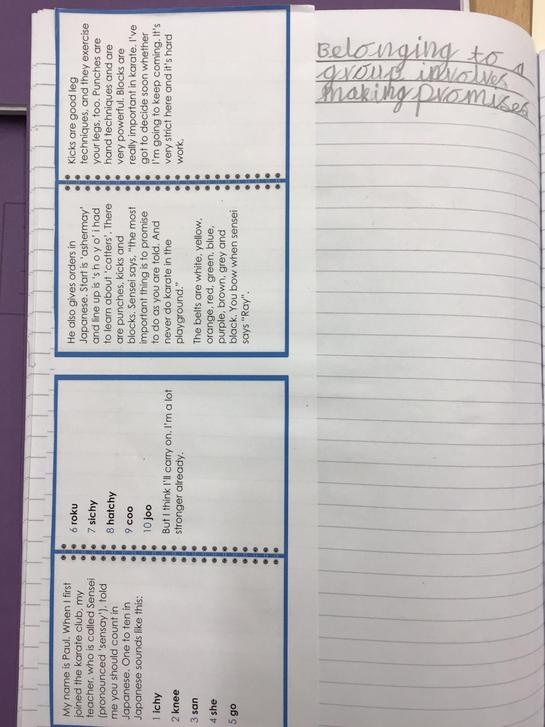 Belonging to a
group involves
making promises
My name is Paul. When I first
joined the karate club, my
teacher, who is called Sensei
(pronounced 'sensay'), told
me you should count in
Japanese. One to ten in
Japanese sounds like this:
1 ichy
2 knee
3 san
4 she
5 go
6 roku
7 sichy
8 hatchy
9 coo
10 joo
But I think I'll carry on. I'm a lot
stronger already.
He also gives orders in
Japanese. Start is 'ashermay'
and line up is 's h o y o' I had
to learn about 'catters'. There
are punches, kicks and
blocks. Sensei says, "the most
important thing is to promise
to do as you are told. And
never do karate in the
playground."
The belts are white, yellow,
orange, red, green, blue,
purple, brown, grey and
black. You bow when sensei
says "Ray".
Kicks are good leg
techniques, and they exercise
your legs, too. Punches are
hand techniques and are
very powerful. Blocks are
really important in karate. I've
got to decide soon whether
I'm going to keep coming. It's
very strict here and it's hard
work.